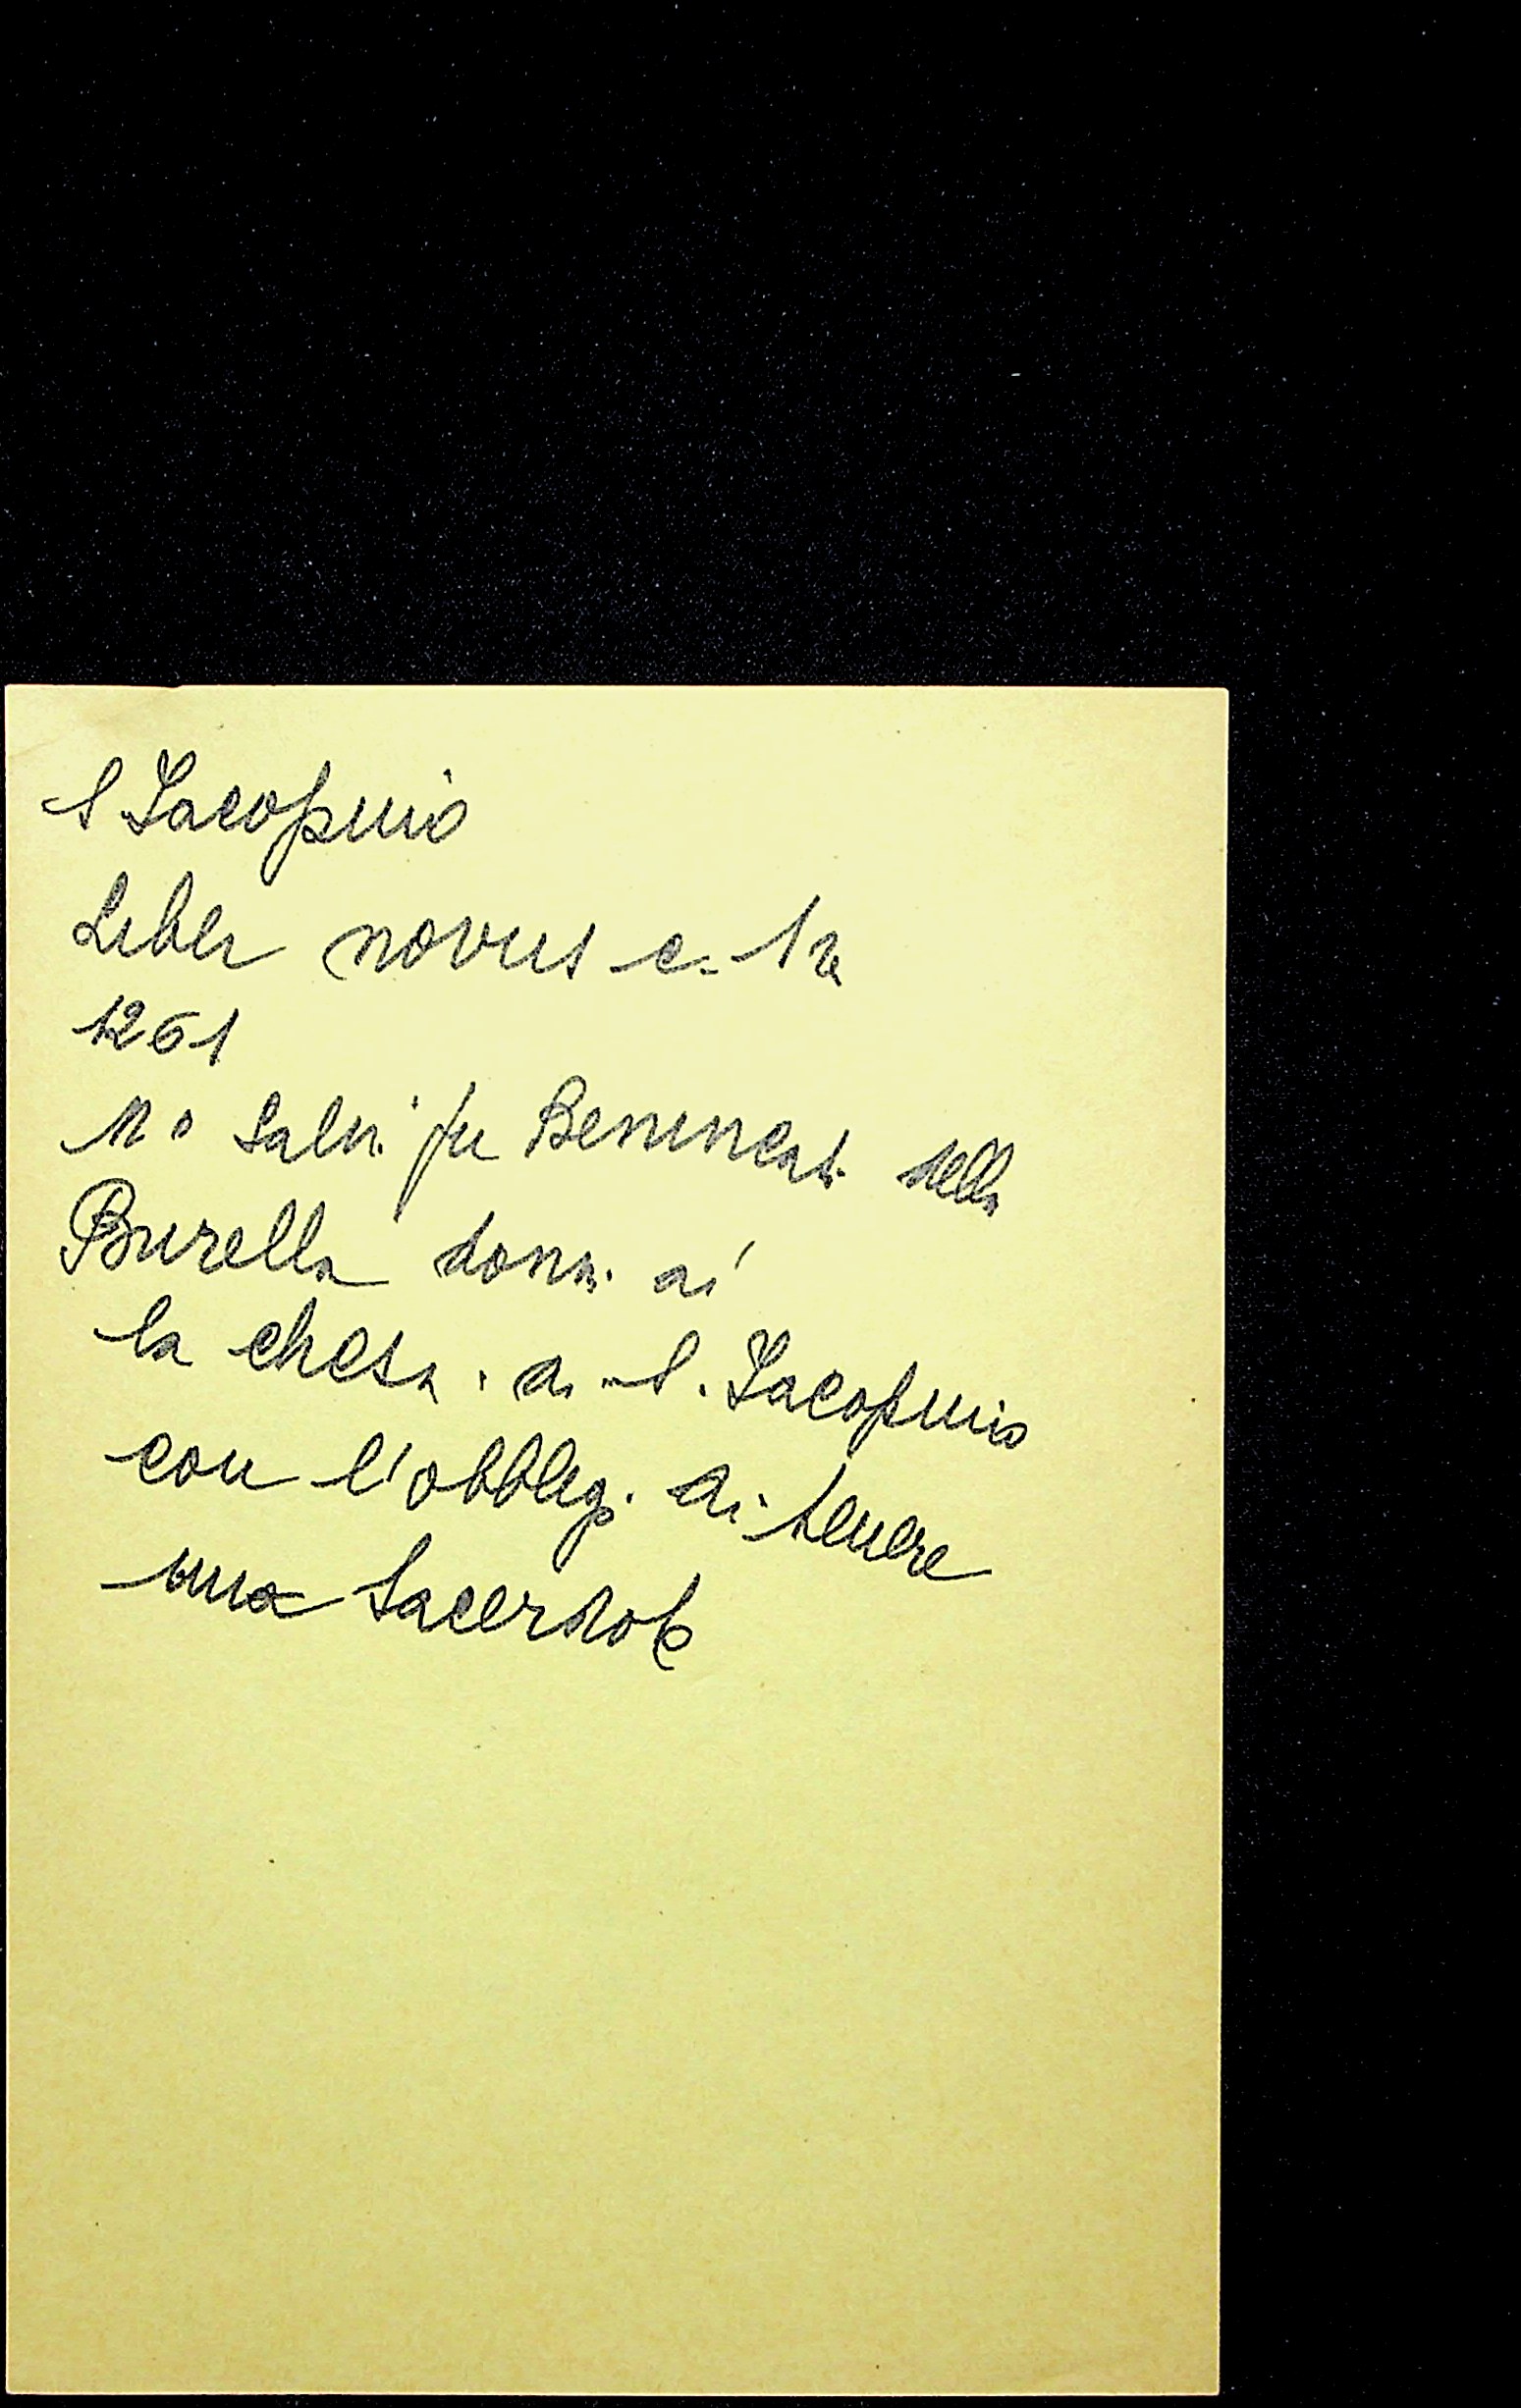 S Iacopino
Liber novus c. 12
1261
M° Salvi fu Benincas. della
Burella dona. ai
la chiesa. di S. Iacopino
con l'obblig. di tenere
uno Sacerdote